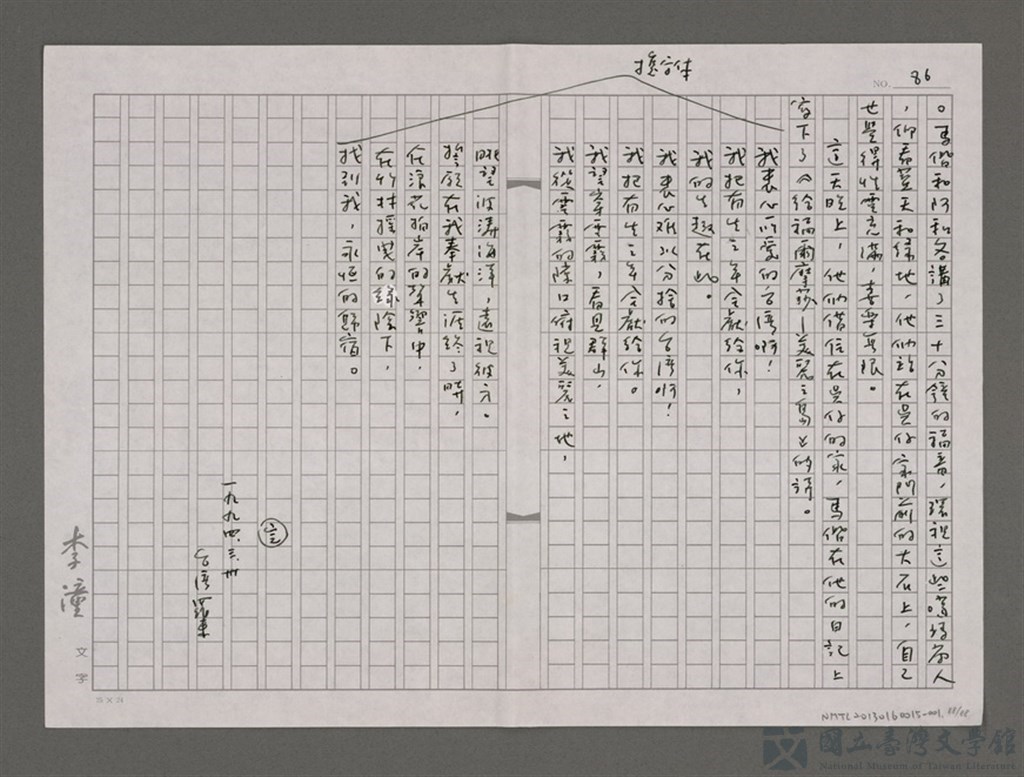 NO. 86
換字体
。馬偕和阿和各講了三十分鐘的福音，環視這些噶瑪蘭人
，仰看藍天和綠地，他們站在是仔家門前的大石上，自己
也覺得性靈充滿，喜樂無限。
這天晚上，他們借住在是仔的家，馬偕在他的日記上
寫下了《給福爾摩莎—美麗之島》的詩。
我衷心所愛的台灣啊！
我把有生之年全獻給你，
我的生趣在此。
我衷心難以分捨的台灣啊！
我把有生之年全獻給你。
我望穿雲霧，看見群山，
我從雲霧的隙口俯視美麗之地，
眺望波濤海洋，遠視彼方。
誓願在我奉獻生涯終了時，
在浪花拍岸的聲響中，
在竹林搖曳的綠陰下，
找到我，永恒的歸宿。
完
一九九四.三.卅
台灣羅東
李潼 文字
25 × 24
NMTL20130160015-001
國立臺灣文學館
National Museum of Taiwan Literature